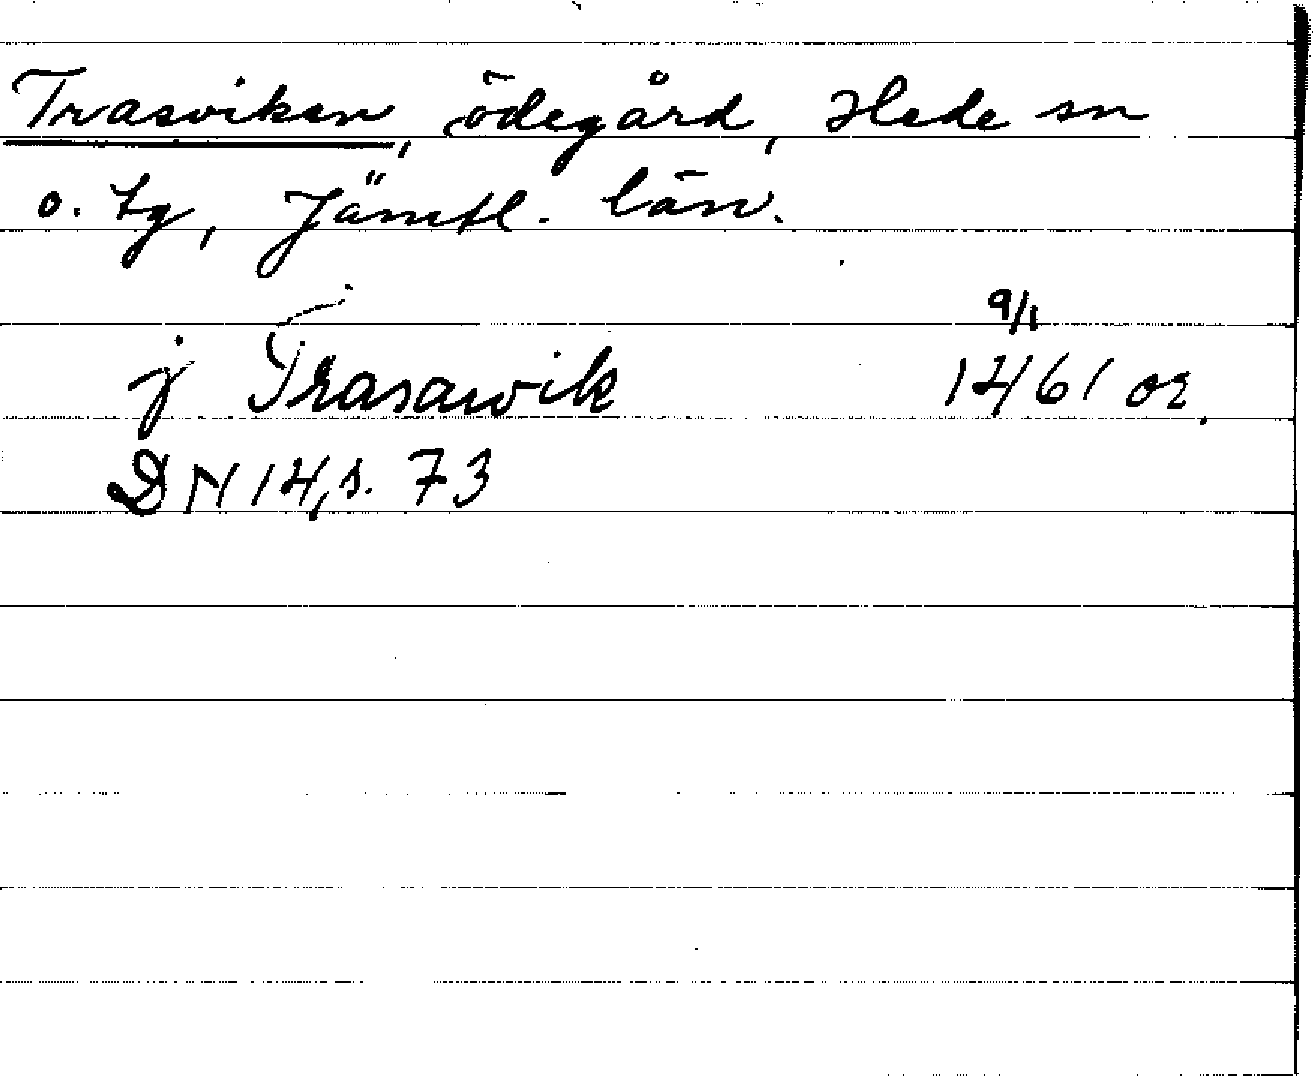 Trasviken, ödegård, Hede sn
o. tg, Jämtl. län.
9/1
j Trasawik 1461 or.
DN 14, s. 73